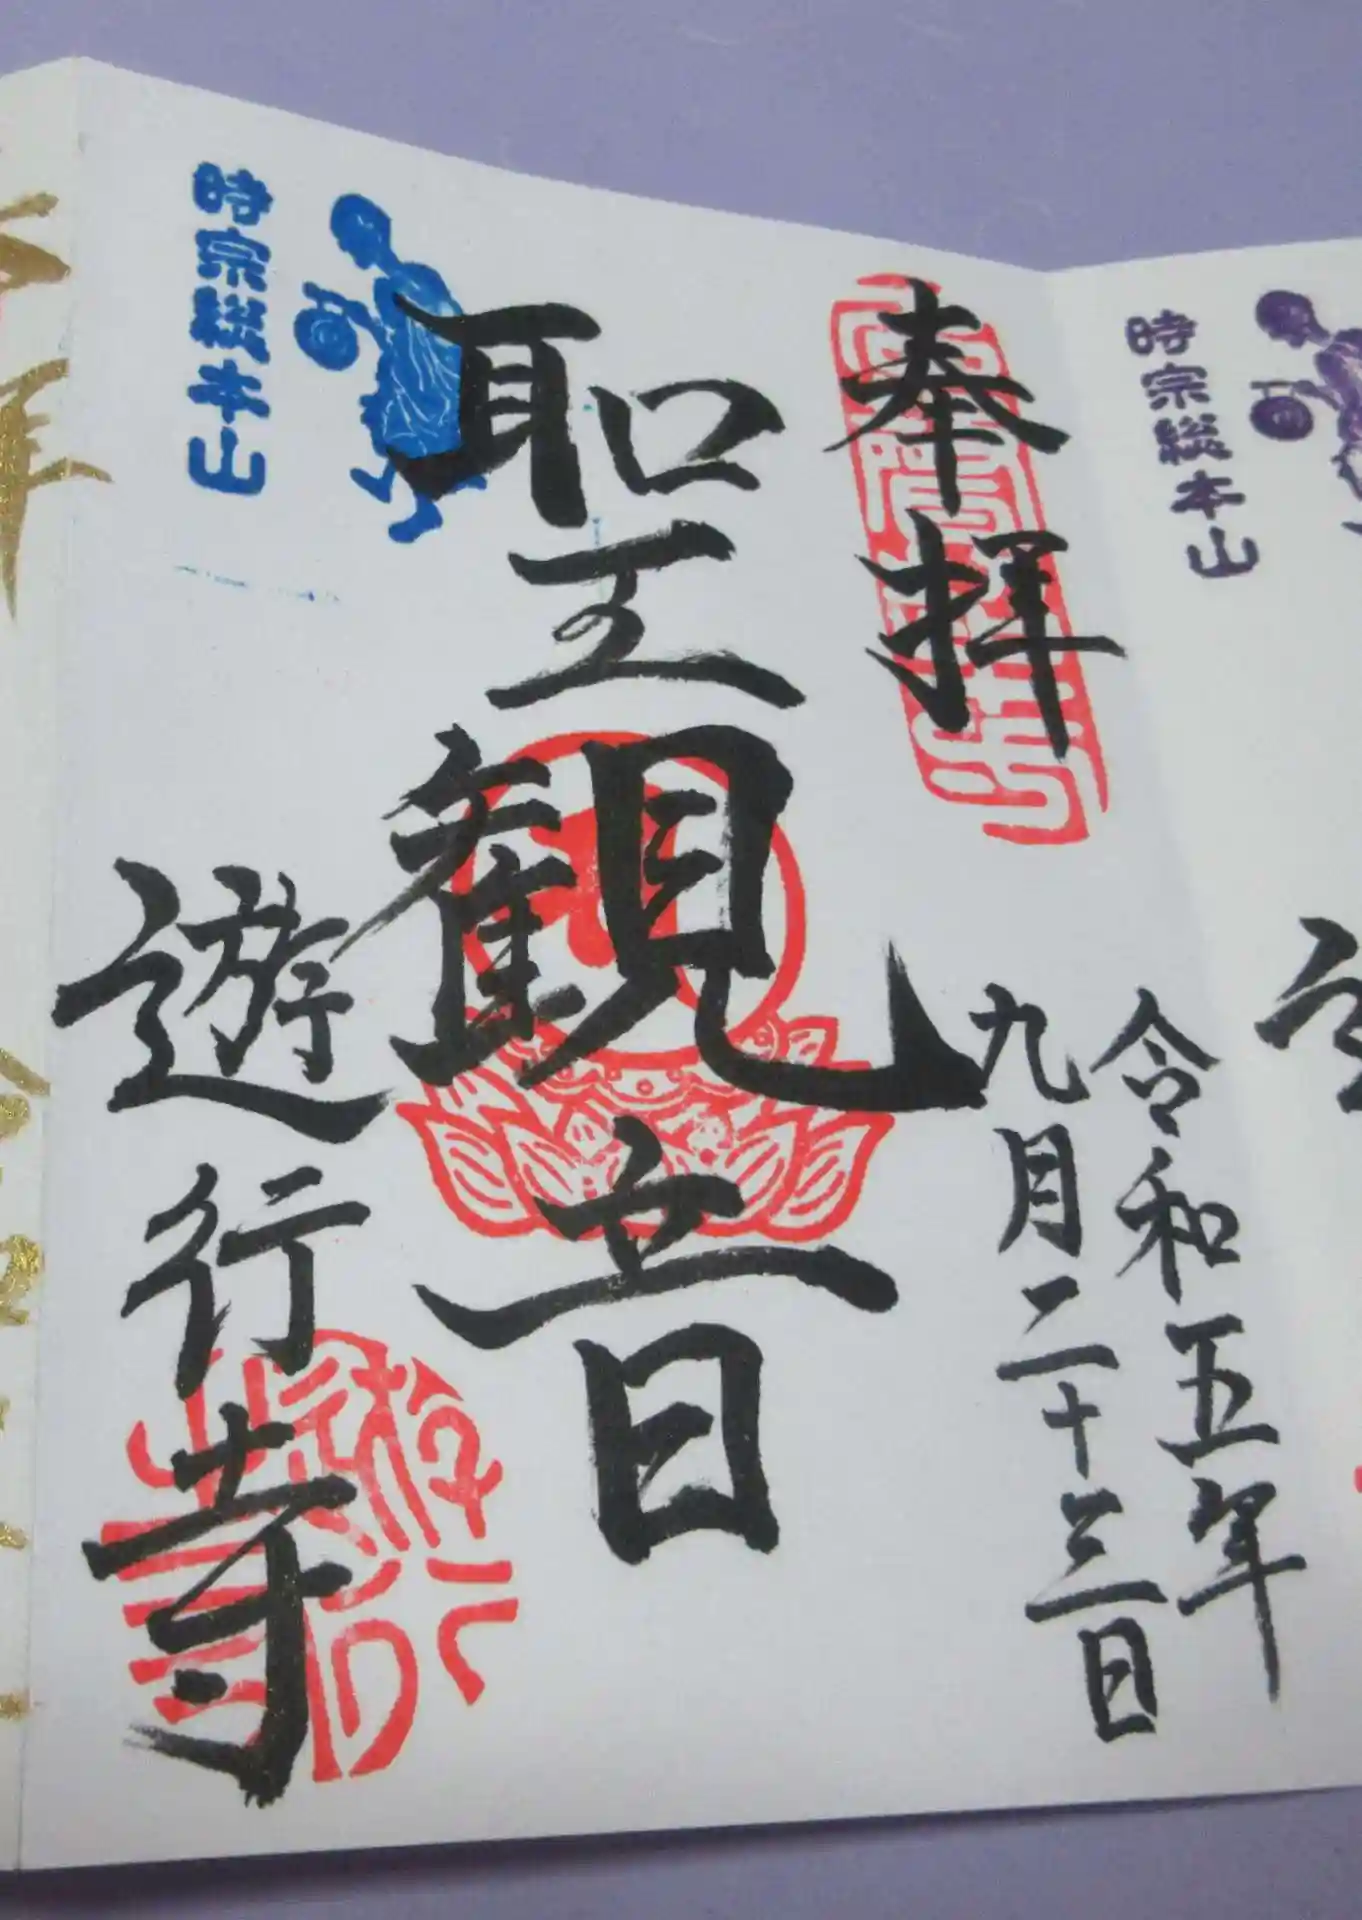 時宗総本山
奉拝
令和五年
九月二十三日
聖観音
時宗総本山
遊行寺